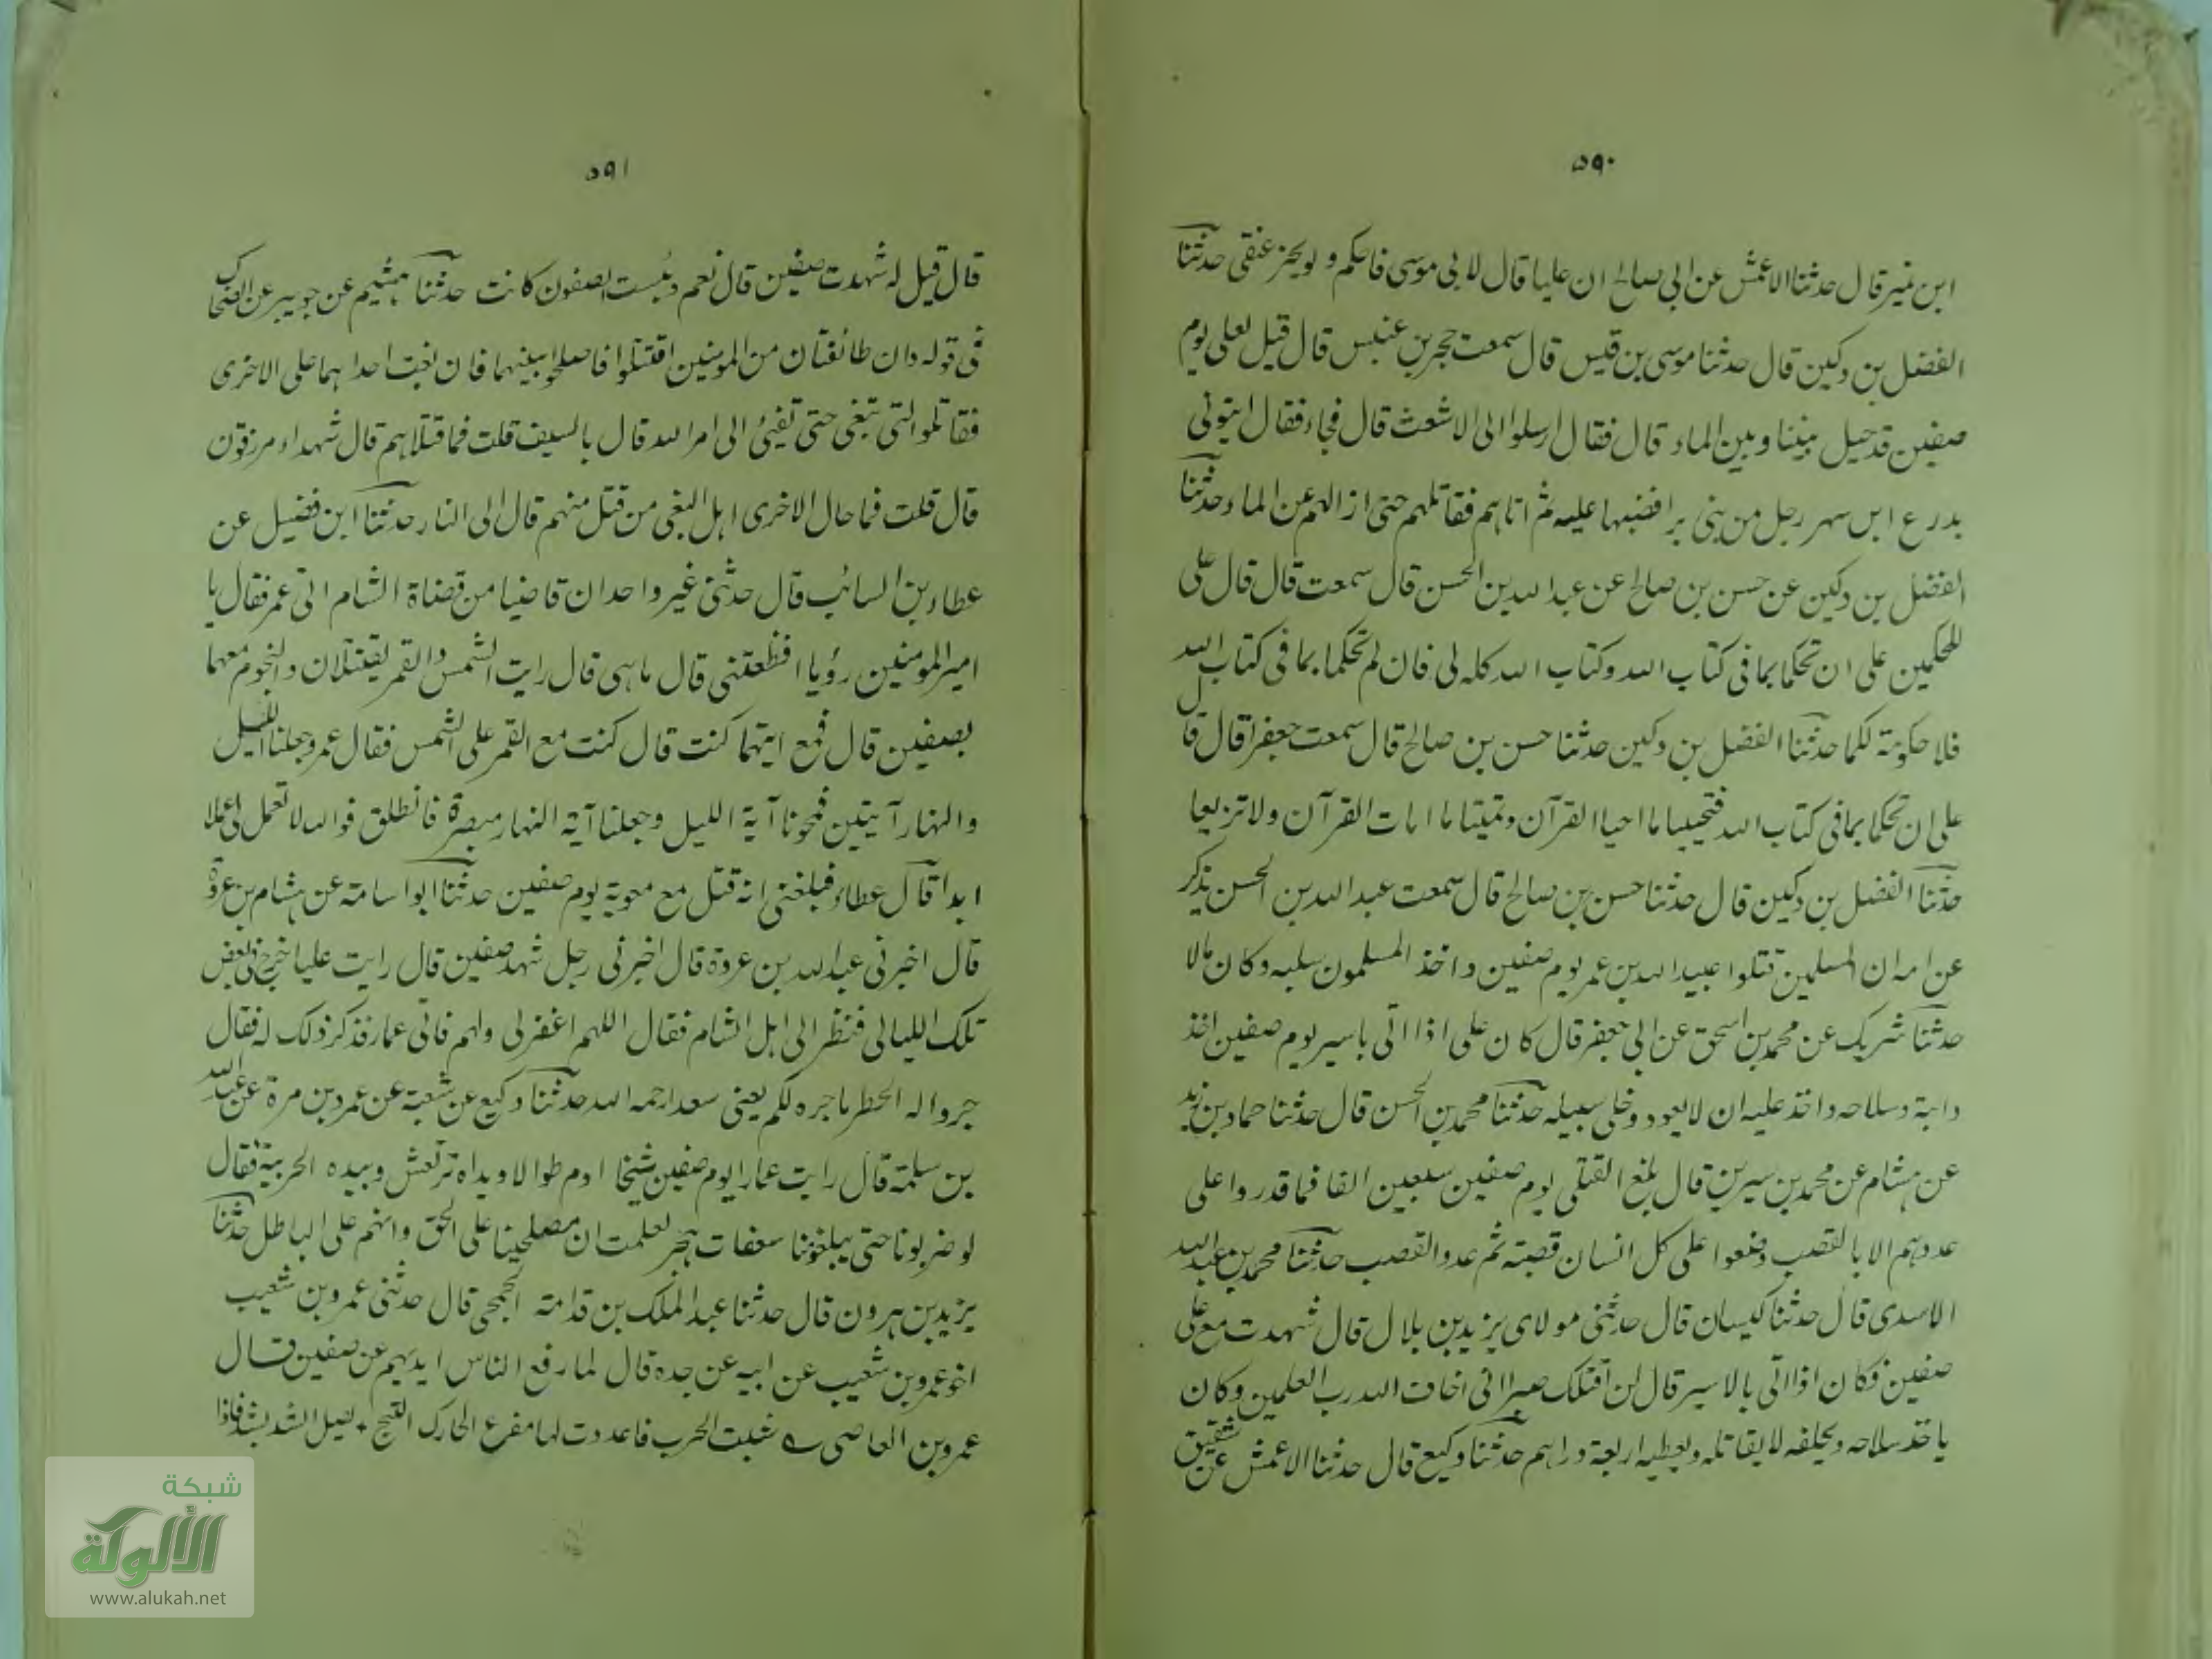 ٥٩٠
ابن نمير قال حدثنا الاعمش عن ابي صالح ان عليا قال لابي موسى فاحكم ولو بحز عنقى حدثنا
الفضل بن دكين قال حدثنا موسى بن قيس قال سمعت حجر بن عنبس قال قيل لعلى يوم
صفين قد حيل بيننا وبين الماء قال فقال ارسلوا الى الاشعث قال فجاء فقال ايتونى
بدرع ابن سهر رجل من بنى برا فضبها عليه ثم اتاهم فقاتلهم حتى ازالهم عن الماء وحدثنا
الفضل بن دكين عن حسن بن صالح عن عبد الله بن الحسن قال سمعت قال قال على
للحكمين على ان تحكما بما فى كتاب الله وكتاب الله كله لى فان لم تحكما بما فى كتاب الله
فلا حكومة لكما حدثنا الفضل بن دكين حدثنا حسن بن صالح قال سمعت جعفرا قال قال
على ان تحكما بما فى كتاب الله فتحييا ما احيا القرآن وتميتا ما امات القرآن ولا تزيعا
حدثنا الفضل بن دكين قال حدثنا حسن بن صالح قال سمعت عبد الله بن الحسن يذكر
عن امه ان المسلمين قتلوا عبيد الله بن عمر يوم صفين واخذ المسلمون سلبه وكان مالا
حدثنا شريك عن محمد بن اسحق عن ابي جعفر قال كان على اذا اتى باسير يوم صفين اخذ
دابة وسلاحه واخذ عليه ان لا يعود وخلى سبيله حدثنا محمد بن الحسن قال حدثنا حماد بن زيد
عن هشام عن محمد بن سيرين قال بلغ القتلى يوم صفين سبعين الفا فما قدروا على
عددهم الا بالقصب وضعوا على كل انسان قصبة ثم عدوا القصب حدثنا محمد بن عبد الله
الاسدى قال حدثنا كيسان قال حدثنى مولاى يزيد بن بلال قال شهدت مع على
صفين فكان اذا اتى بالاسير قال لن اقتلك صبرا انى اخاف الله رب العلمين وكان
ياخذ سلاحه ويحلفه لا يقاتله ويعطيه اربعة دراهم حدثنا وكيع قال حدثنا الاعمش عن شقيق
٥٩١
قال قيل له شهدت صفين قال نعم وبئست الصفون كانت حدثنا هشيم عن جويبر عن الضحاك
فى قوله وان طائفتان من المومنين اقتتلوا فاصلحوا بينهما فان بغت احداهما على الاخرى
فقاتلوا التى تبغى حتى تفيئ الى امر الله قال بالسيف قلت فما قتلاهم قال شهداء مرزقون
قال قلت فما حال الاخرى اهل البغى من قتل منهم قال الى النار حدثنا ابن فضيل عن
عطاء بن السائب قال حدثنى غير واحد ان قاضيا من قضاة الشام اتى عمر فقال يا
امير المومنين رؤيا افظعتنى قال ما هى قال رايت الشمس والقمر يقتتلان والنجوم معهما
بصفين قال فمع ايتهما كنت قال كنت مع القمر على الشمس فقال عمر وجعلنا الليل
والنهار آيتين فمحونا آية الليل وجعلنا آية النهار مبصرة فانطلق فوالله لا تعمل لى عملا
ابدا قال عطاء فبلغنى انه قتل مع معوية يوم صفين حدثنا ابو اسامة عن هشام بن عروة
قال اخبرنى عبد الله بن عروة قال اخبرنى رجل شهد صفين قال رايت عليا خرج فى بعض
تلك الليالى فنظر الى اهل الشام فقال اللهم اغفر لى ولهم فاتى عمار فذكر ذلك له فقال
جروا له الخطر ما جره لكم يعنى سعدا رحمه الله حدثنا وكيع عن شعبة عن عمرو بن مرة عن عبد الله
بن سلمة قال رايت عمارا يوم صفين شيخا ادم طوالا ويداه ترتعش وبيده الحربية فقال
لو ضربونا حتى يبلغونا سعفات هجر لعلمت ان مصلحينا على الحق وانهم على الباطل حدثنا
يزيد بن هرون قال حدثنا عبد الملك بن قدامة الجمحى قال حدثنى عمرو بن شعيب
اخو عمرو بن شعيب عن ابيه عن جده قال لما رفع الناس ايديهم عن صفين قال
عمرو بن العاصى شبت الحرب فاعددت لها مفرع الحارك يصل الشد بشد فاذا
شبكة
الألوكة
www.alukah.net